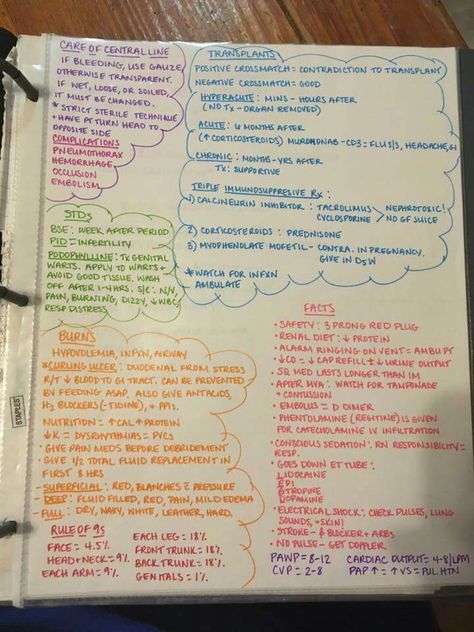 CARE OF CENTRAL LINE
IF BLEEDING, USE GAUZE,
OTHERWISE TRANSPARENT.
IF WET, LOOSE, OR SOILED,
IT MUST BE CHANGED.
* STRICT STERILE TECHNIQUE
+ HAVE PT TURN HEAD TO
OPPOSITE SIDE
COMPLICATIONS
PNEUMOTHORAX
HEMORRHAGE
OCCLUSION
EMBOLISM
TRANSPLANTS
POSITIVE CROSSMATCH = CONTRADICTION TO TRANSPLANT
NEGATIVE CROSSMATCH = GOOD
HYPERACUTE: MINS - HOURS AFTER
(NO TX - ORGAN REMOVED)
ACUTE: 6 MONTHS AFTER
(↑ CORTICOSTEROIDS) MUROMONAB - CD3: FLU S/S, HEADACHE, GI
CHRONIC: MONTHS - YRS AFTER
TX: SUPPORTIVE
TRIPLE IMMUNOSUPPRESIVE RX:
1) CALCINEURIN INHIBITOR: TACROLIMUS NEPHROTOXIC!
CYCLOSPORINE NO GF JUICE
2) CORTICOSTEROIDS: PREDNISONE
3) MYOPHENOLATE MOFETIL - CONTRA. IN PREGNANCY.
GIVE IN D5W
*WATCH FOR INFXN
AMBULATE
STDs
BSE: WEEK AFTER PERIOD
PID = INFERTILITY
PODOPHYLLINE: TX GENITAL
WARTS. APPLY TO WARTS +
AVOID GOOD TISSUE. WASH
OFF AFTER 1-4HRS. S/E: N/V,
PAIN, BURNING, DIZZY, ↓ WBC,
RESP DISTRESS
BURNS
HYPOVOLEMIA, INFXN, AIRWAY
*CURLING ULCER: DUODENAL FROM STRESS
R/T ↓ BLOOD TO GI TRACT. CAN BE PREVENTED
BY FEEDING ASAP. ALSO GIVE ANTACIDS,
H2 BLOCKERS (-TIDINE), + PPIs.
NUTRITION = ↑ CAL ↑ PROTEIN
↓K = DYSRHYTHMIAS = PVCS
- GIVE PAIN MEDS BEFORE DEBRIDEMENT
- GIVE 1/2 TOTAL FLUID REPLACEMENT IN
FIRST 8 HRS
- SUPERFICIAL: RED, BLANCHES c̄ PRESSURE
- DEEP: FLUID FILLED, RED, PAIN, MILD EDEMA
- FULL: DRY, WAXY, WHITE, LEATHER, HARD.
RULE OF 9s
FACE = 4.5%
HEAD + NECK = 9%
EACH ARM = 9%
EACH LEG = 18%
FRONT TRUNK = 18%
BACK TRUNK = 18%
GENITALS = 1%
FACTS
• SAFETY: 3 PRONG RED PLUG
• RENAL DIET: ↓ PROTEIN
• ALARM RINGING ON VENT = AMBU PT
• ↓CO = ↓ CAP REFILL + ↓ URINE OUTPUT
• SQ MED LASTS LONGER THAN IM
• AFTER MVA: WATCH FOR TAMPONADE
+ CONTUSSION
• EMBOLUS = D DIMER
• PHENTOLAMINE (REGITINE) IS GIVEN
FOR CATECHOLAMINE IV INFILTRATION
• CONSCIOUS SEDATION: RN RESPONSIBILITY =
RESP.
• GOES DOWN ET TUBE:
LIDOCAINE
EPI
ATROPINE
DOPAMINE
• ELECTRICAL SHOCK: CHECK PULSES, LUNG
SOUNDS, + SKIN!
• STROKE - β BLOCKER + ARBs
• NO PULSE - GET DOPPLER
PAWP = 8-12 CARDIAC OUTPUT = 4-8/LPM
CVP = 2-8 PAP ↑ = ↑ VS = PUL. HTN
STAPLES